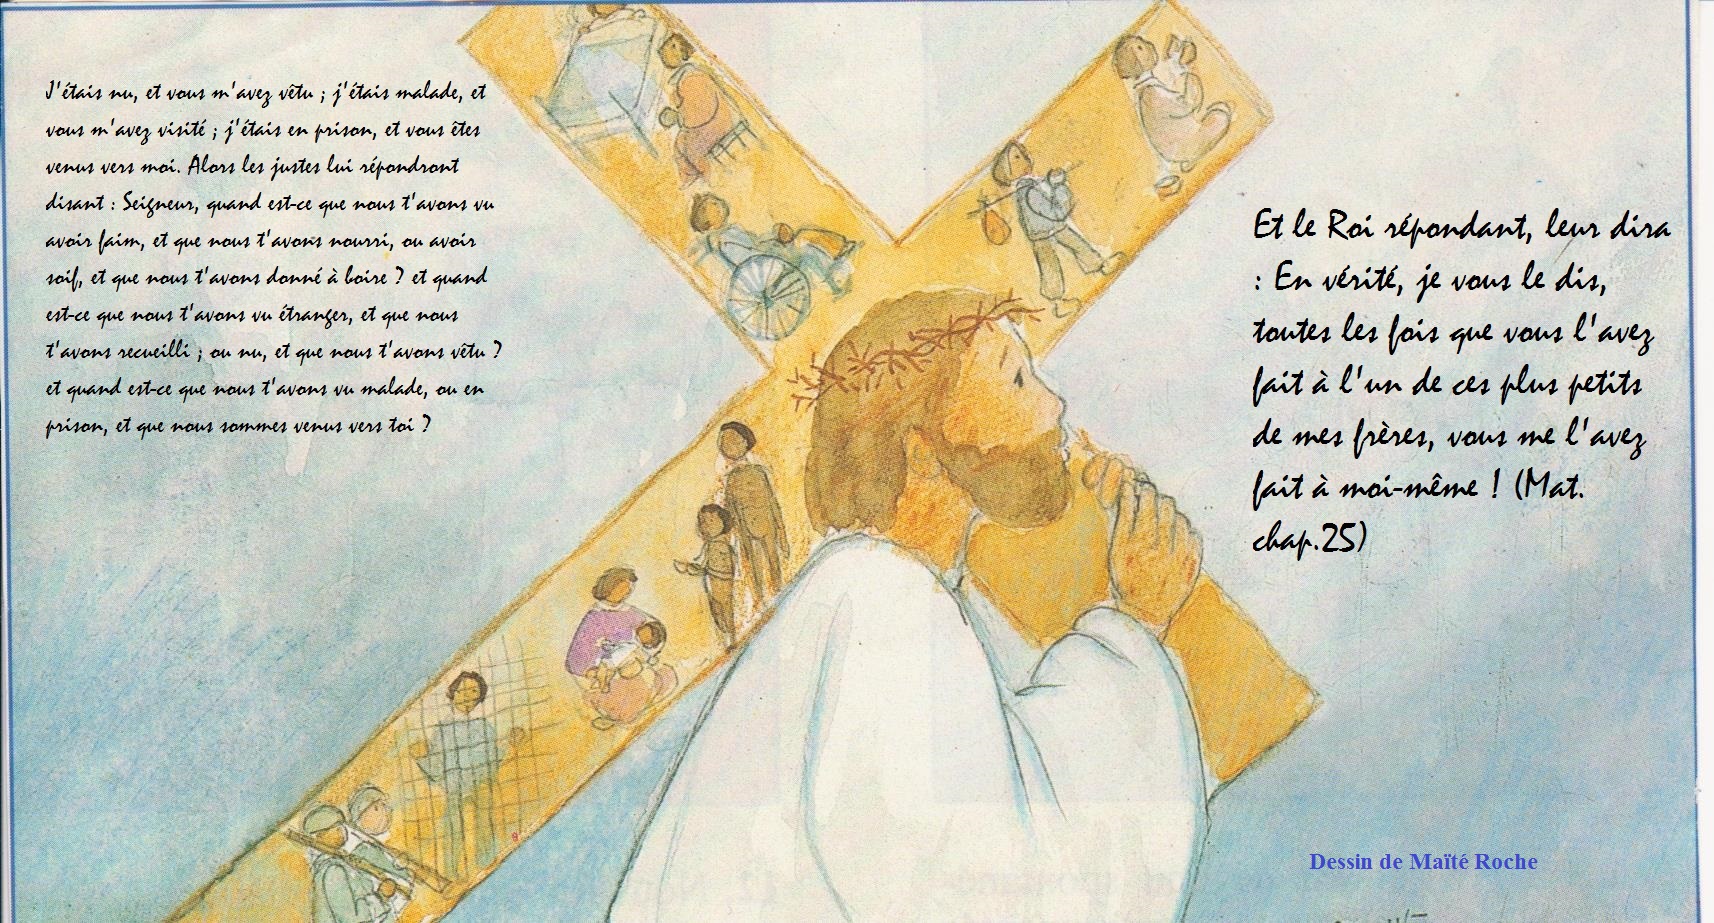 J'étais nu, et vous m'avez vêtu ; j'étais malade, et
vous m'avez visité ; j'étais en prison, et vous êtes
venus vers moi. Alors les justes lui répondront
disant : Seigneur, quand est-ce que nous t'avons vu
avoir faim, et que nous t'avons nourri, ou avoir
soif, et que nous t'avons donné à boire ? et quand
est-ce que nous t'avons vu étranger, et que nous
t'avons recueilli ; ou nu, et que nous t'avons vêtu ?
et quand est-ce que nous t'avons vu malade, ou en
prison, et que nous sommes venus vers toi ?
Et le Roi répondant, leur dira
: En vérité, je vous le dis,
toutes les fois que vous l'avez
fait à l'un de ces plus petits
de mes frères, vous me l'avez
fait à moi-même ! (Mat.
chap.25)
Dessin de Maïté Roche